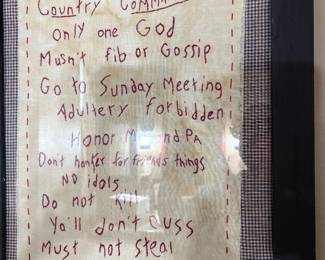 Country
Only one God
Musn't fib or Gossip
Go to Sunday Meeting
Adultery forbidden
Honor
Don't hanker for friends things
No idols
Do not kill
Ya'll don't cuss
Must not steal